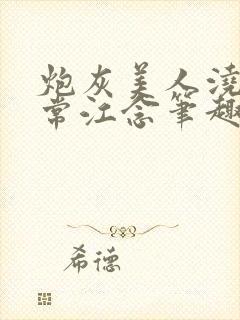 炮灰美人浇
常江念笔趣
希德